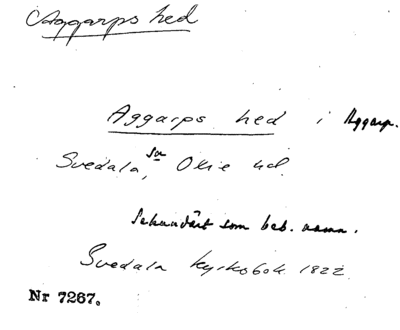 Aggarps hed
Aggarps hed i Aggarp.
Svedala, sn Oxie hd.
Sekundärt som beb. namn.
Svedala kyrkobok 1822
Nr 7267.